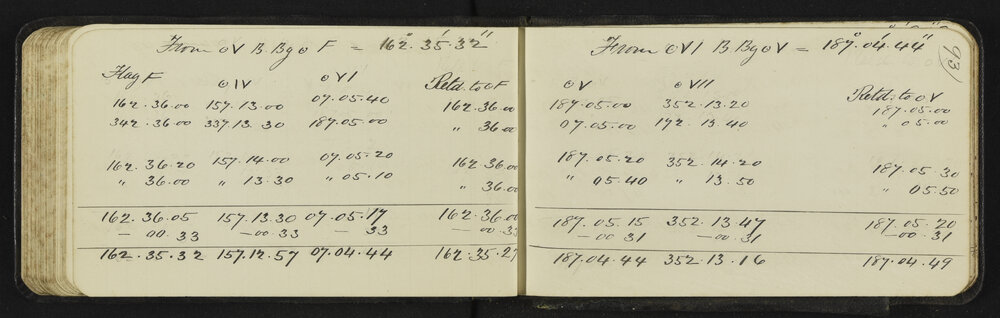 From ⊙V B. Bg ⊙ F = 162°. 35'. 32"
Flag F ⊙IV ⊙VI Retd. to ⊙F
162.36.00 157.13.00 07.05.40 162.36.00
342.36.00 337.13.30 187.05.00 " 36.00
162.36.20 157.14.00 07.05.20 162.36.00
" 36.00 " 13.30 " 05.10 " 36.00
162.36.05 157.13.30 07.05.17 162.36.00
— 00.33 — 00.33 — 33 — 00.33
162.35.32 157.12.57 07.04.44 162.35.27
93
From ⊙VI B. Bg ⊙V = 187°. 04'. 44"
⊙V ⊙VII Retd. to ⊙V
187.05.00 352.13.20 187.05.00
07.05.00 172.13.40 " 05.00
187.05.20 352.14.20 187.05.30
" 05.40 " 13.50 " 05.50
187.05.15 352.13.47 187.05.20
— 00 31 — 00.31 — 00.31
187.04.44 352.13.16 187.04.49